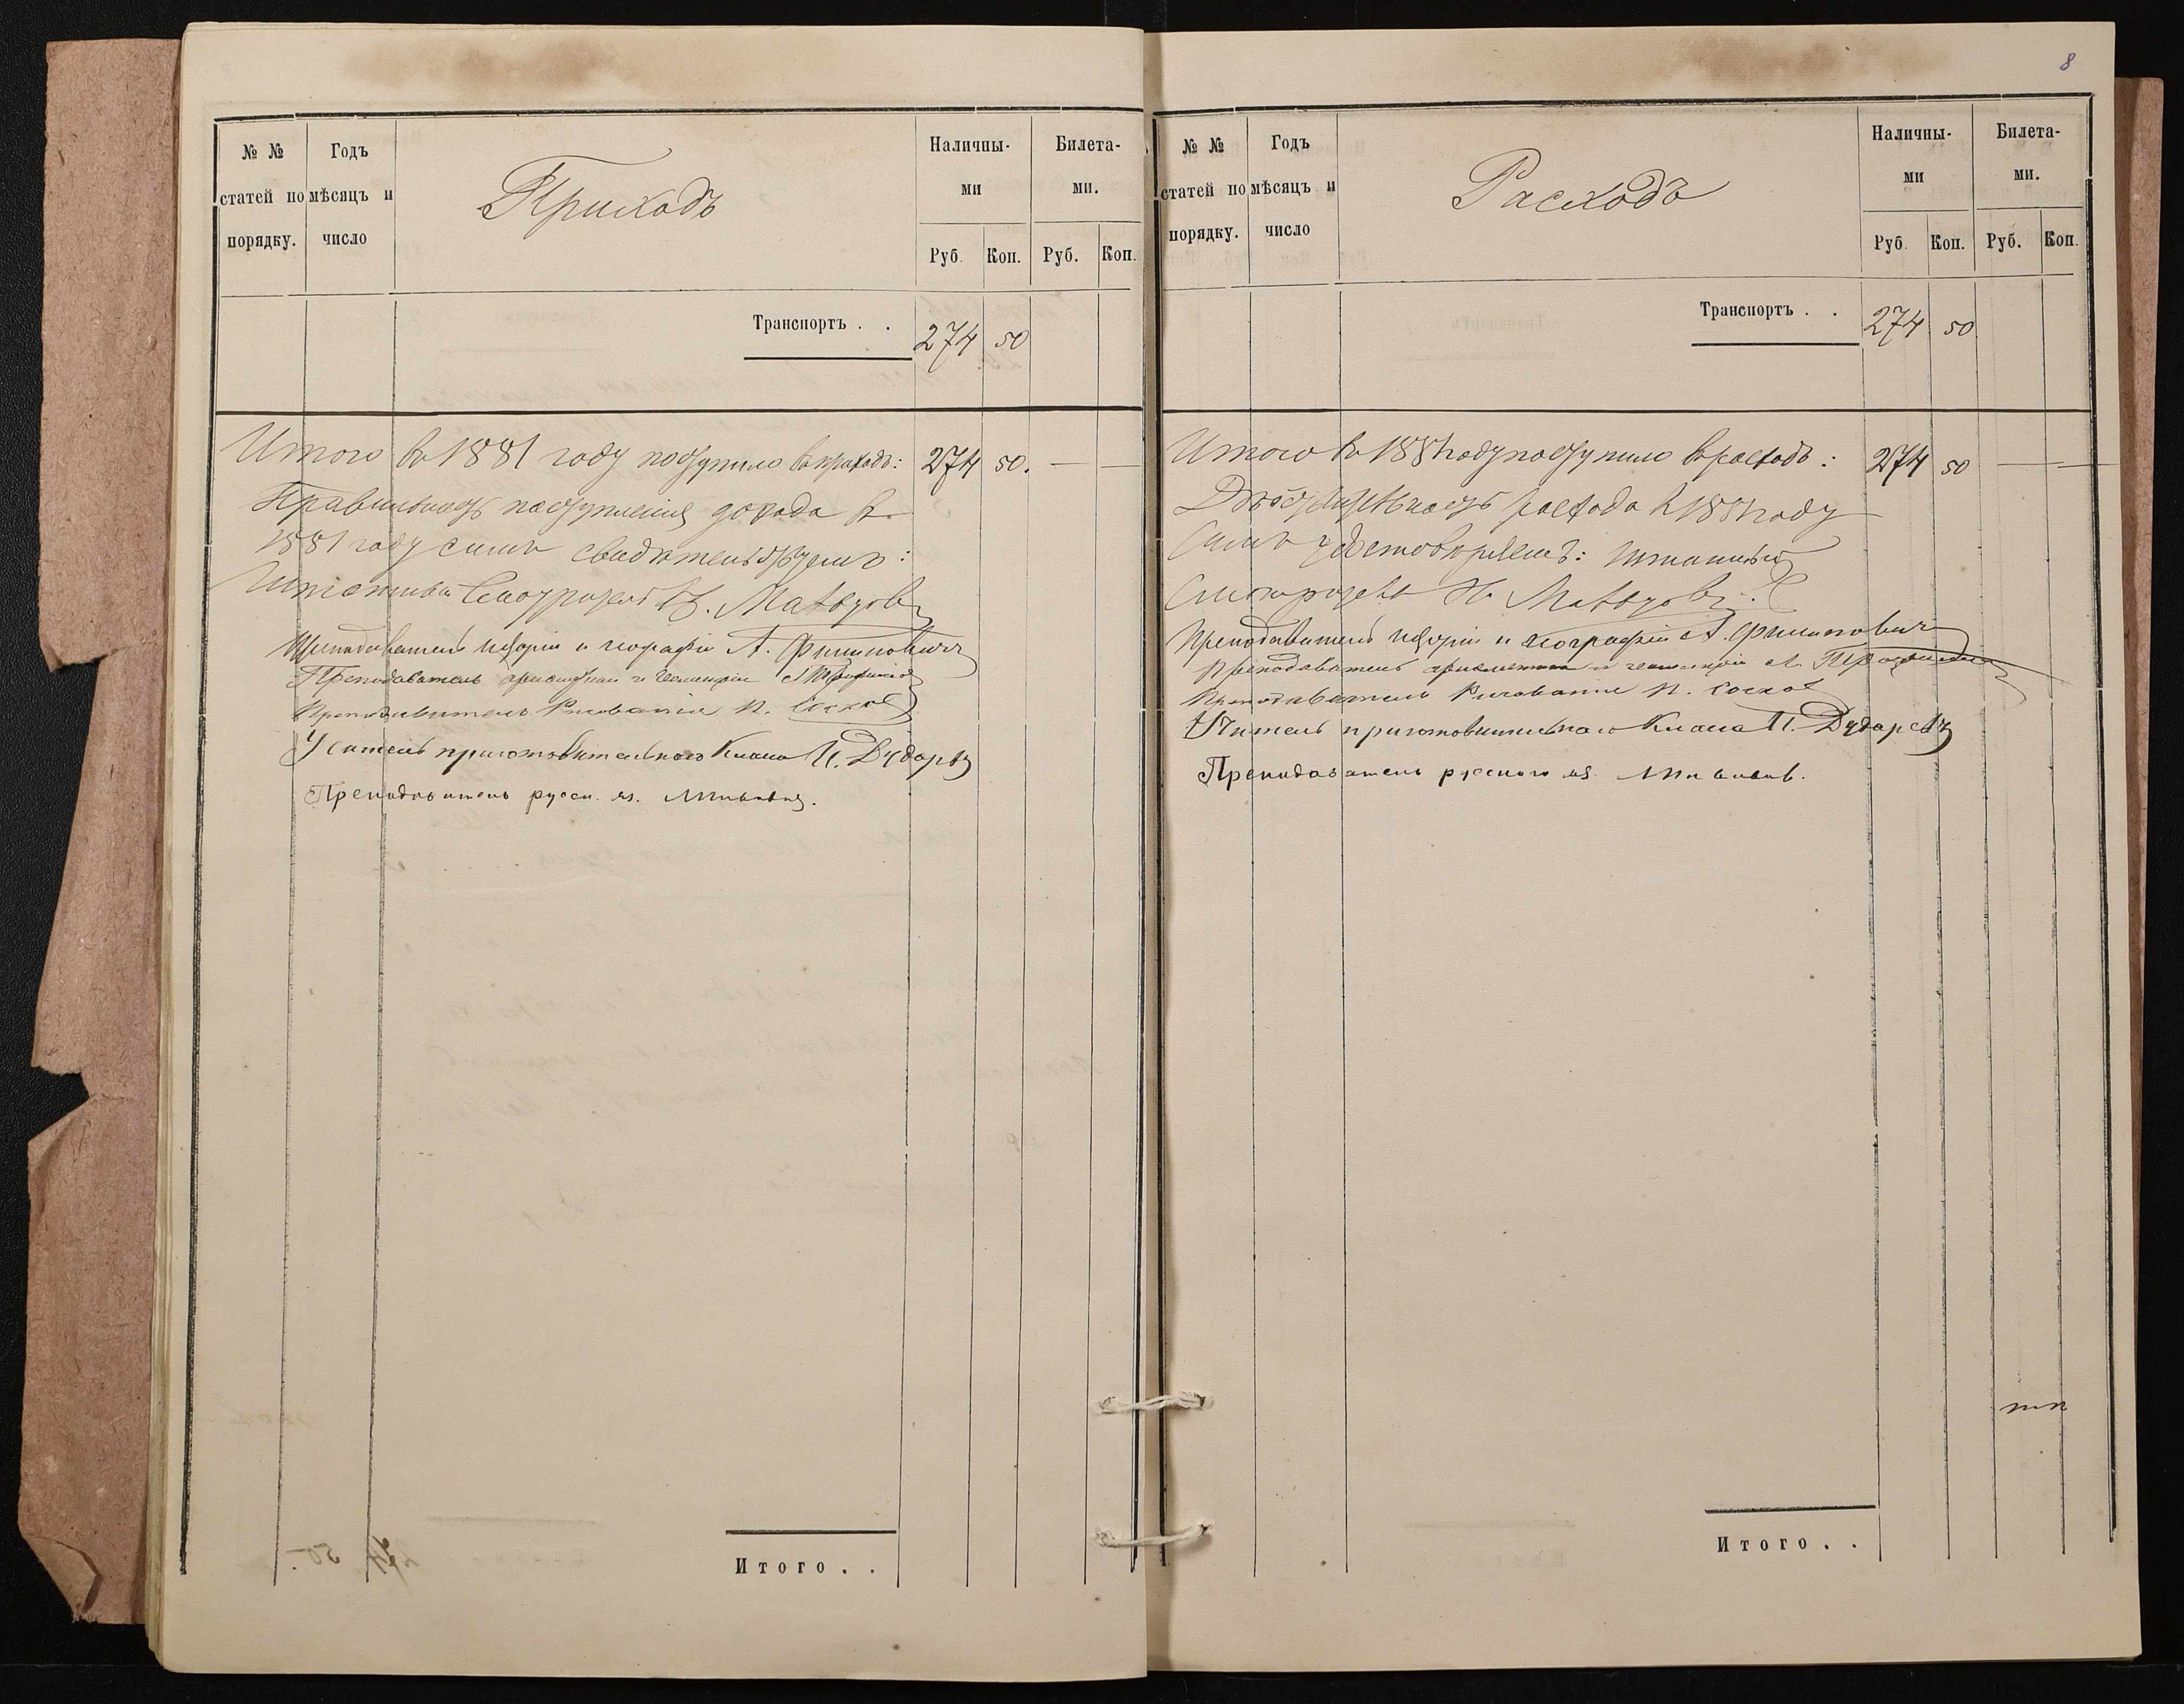 № № статей по порядку.
Годъ мѣсяцъ и число
Приходъ
Наличны-ми
Билета-ми.
Руб. Коп. Руб. Коп.
Транспортъ . . 274 50
Итого въ 1881 году поступило въ приходъ: 274 50. — —
Правильность поступленія дохода въ
1881 году симъ свидѣтельствуемъ:
Штатный Смотритель
Преподаватель исторіи и географіи А. Филиповичъ
Преподаватель ариѳметики и геометріи
Преподаватель Рисованія П. Сосновъ
Учитель приготовительнаго Класса И. Дударевъ
Преподаватель русск. яз.
Итого . .
8
№ № статей по порядку.
Годъ мѣсяцъ и число
Расходъ
Наличны-ми
Билета-ми.
Руб. Коп. Руб. Коп.
Транспортъ . . 274 50
Итого въ 1881 году поступило въ расходъ: 274 50 — —
Дѣйствительность расхода въ 1881 году
Симъ удостовѣряемъ: Штатный
Смотритель
Преподаватель исторіи и географіи А. Филиповичъ
Преподаватель ариѳметики и геометріи
Преподаватель Рисованія П. Сосновъ
Учитель приготовительнаго Класса И. Дударевъ
Преподаватель русскаго яз.
Итого . .